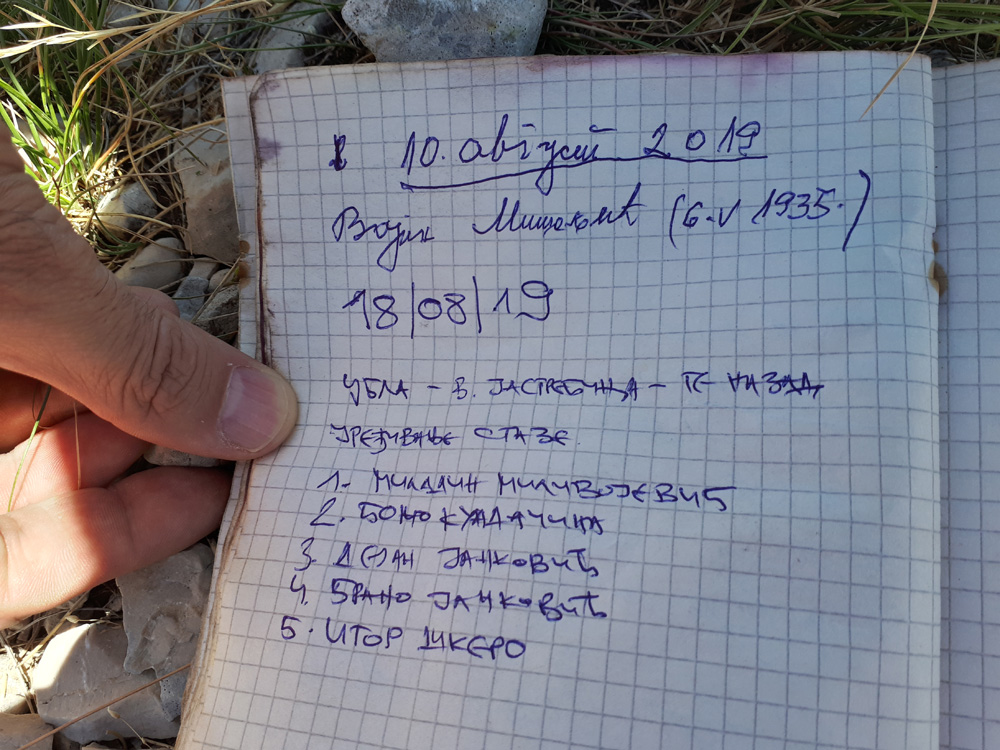 10. август 2019
Војин (6. V 1935.)
18/08/19
УБЛА - В. ЈАСТРЕБИЦА - И НАЗАД
УРЕЂИВАЊЕ СТАЗЕ.
1. МИЛАДИН МИЛИВОЈЕВИЋ
2. БОЖО КУНДАЧИНА
3. ДЕЈАН ЈАНКОВИЋ
4. БРАНО ЈАНКОВИЋ
5. ИГОР ШКЕРО